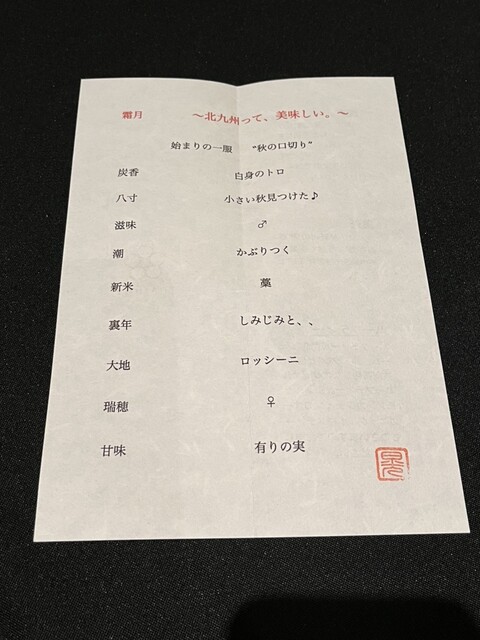 霜月 ～北九州って、美味しい。～
始まりの一服 “秋の口切り”
炭香 白身のトロ
八寸 小さい秋見つけた♪
滋味 ♂
潮 かぶりつく
新米 藁
裏年 しみじみと、、
大地 ロッシーニ
瑞穂 ♀
甘味 有りの実